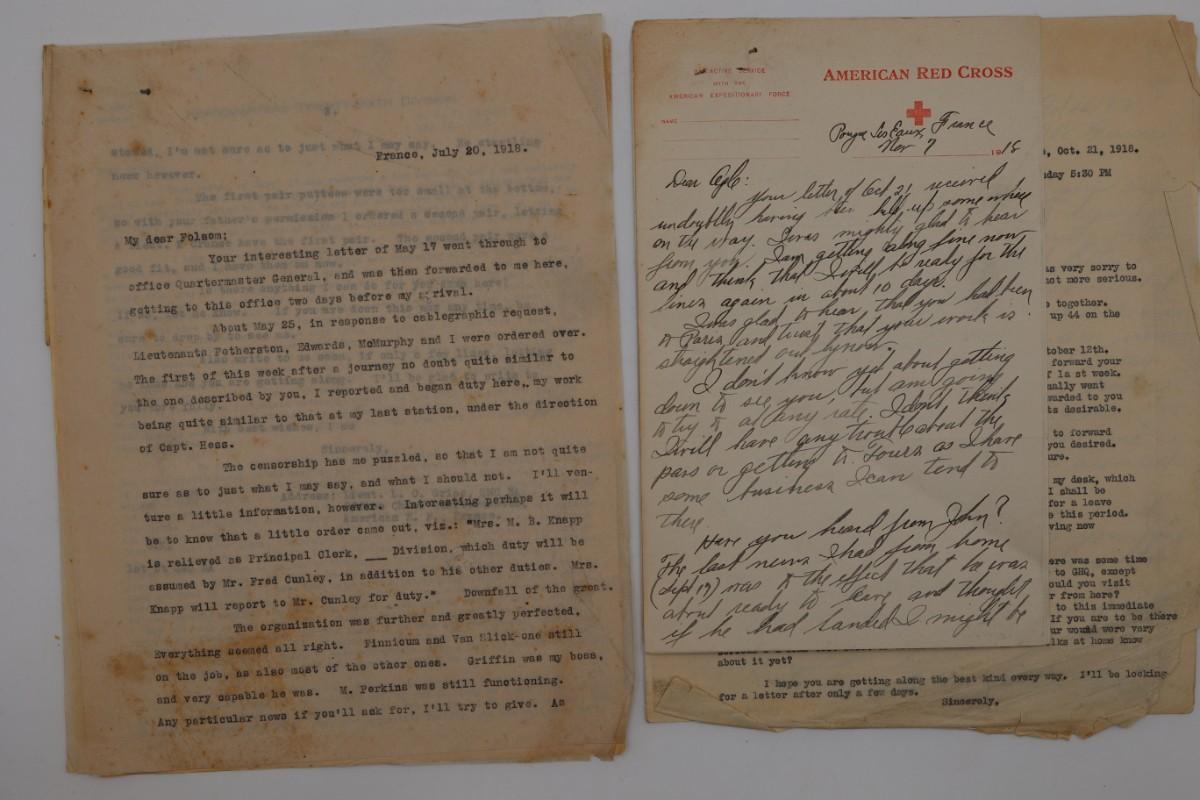 France, July 20, 1918.
My dear Folsom;
Your interesting letter of May 17 went through to
office Quartermaster General, and was then forwarded to me here,
getting to this office two days before my arrival.
About May 25, in response to cablegraphic request,
Lieutenants Fotherston, Edwards, McMurphy and I were ordered over.
The first of this week after a journey no doubt quite similar to
the one described by you, I reported and began duty here, my work
being quite similar to that at my last station, under the direction
of Capt. Hess.
The censorship has me puzzled, so that I am not quite
sure as to just what I may say, and what I should not. I'll ven-
ture a little information, however. Interesting perhaps it will
be to know that a little order came out, viz.: "Mrs. M. B. Knapp
is relieved as Principal Clerk, ___ Division, which duty will be
assumed by Mr. Fred Cunley, in addition to his other duties. Mrs.
Knapp will report to Mr. Cunley for duty." Downfall of the great.
The organization was further and greatly perfected,
Everything seemed all right. Finnicum and Van Slick-one still
on the job, as also most of the other ones. Griffin was my boss,
and very capable he was. M. Perkins was still functioning.
Any particular news if you'll ask for, I'll try to give. As
stood, I'm not sure as to just what I may say.
here however.
The first pair puttees were too small at the bottom,
so with your father's permission I ordered a second pair,
good fit, and I have
Sincerely,
ACTIVE SERVICE
WITH THE
AMERICAN EXPEDITIONARY FORCE
NAME
AMERICAN RED CROSS
Pougue les Eaux, France
Nov 7 1918
Dear
Your letter of Oct 21 received
undoubtly having been held up some where
on the way. I was mighty glad to hear
from you. I am getting along fine now
and think that I will be ready for the
lines again in about 10 days.
I was glad to hear that you had been
to Paris and trust that your work is
straightened out bynow.
I don't know yet about getting
down to see you, but am going
to try to at any rate. I don't think
I will have any trouble about the
pass or getting to Tours as I have
some business I can tend to
there.
Have you heard from John?
The last news I had from home
(Sept 17) was to the effect that he was
about ready to leave and thought
if he had landed I might be
Oct. 21, 1918.
day 5:30 PM
as very sorry to
not more serious.
together.
up 44 on the
tober 12th.
forward your
f last week.
ually went
warded to you
ts desirable.
to forward
you desired.
ure.
my desk, which
I shall be
for a leave
e this period.
ving now
ere was some time
to GHQ, except
ould you visit
r from here?
to this immediate
If you are to be there
ur would were vary
lks at home know
about it yet?
I hope you are getting along the best kind every way. I'll be looking
for a letter after only a few days.
Sincerely,